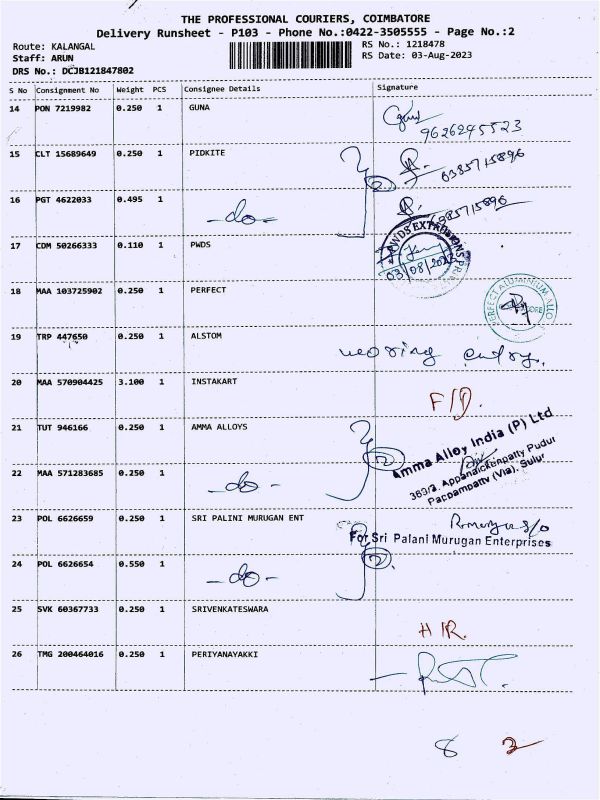 THE PROFESSIONAL COURIERS, COIMBATORE
Delivery Runsheet - P103 - Phone No.:0422-3505555 - Page No.:2
Route: KALANGAL RS No.: 1218478
Staff: ARUN RS Date: 03-Aug-2023
DRS No.: DCJB121847802
S No Consignment No Weight PCS Consignee Details Signature
14 PON 7219982 0.250 1 GUNA
9626295523
15 CLT 15689649 0.250 1 PIDKITE
16 PGT 4622033 0.495 1 -do-
17 CDM 50266333 0.110 1 PWDS
PWDS EXTRUSIONS
03/08/2023
18 MAA 103725902 0.250 1 PERFECT
PERFECT ALUMINIUM ALLO
19 TRP 447650 0.250 1 ALSTOM
20 MAA 570904425 3.100 1 INSTAKART
21 TUT 946166 0.250 1 AMMA ALLOYS
2
Amma Alloy India (P) Ltd
369/2, Appanaickenpatty Pudur
Pappampatty (Via), Sulur
22 MAA 571283685 0.250 1 -do-
23 POL 6626659 0.250 1 SRI PALINI MURUGAN ENT
For Sri Palani Murugan Enterprises
24 POL 6626654 0.550 1 -do- 2
25 SVK 60367733 0.250 1 SRIVENKATESWARA
26 TMG 200464016 0.250 1 PERIYANAYAKKI
8 2